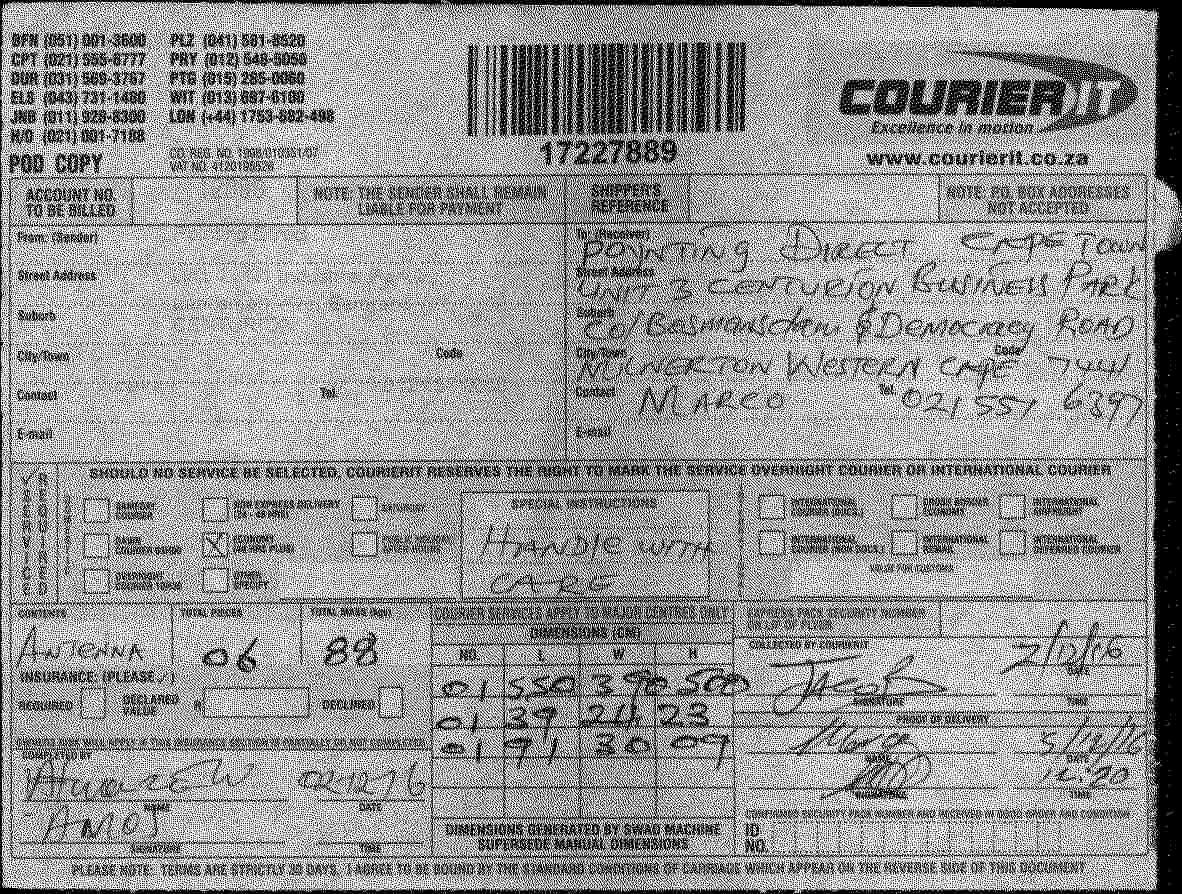 BFN (051) 001-3600 PLZ (041) 581-8520
CPT (021) 555-6777 PRY (012) 548-5058
DUR (031) 569-3767 PTG (015) 285-0060
ELS (043) 731-1480 WIT (013) 697-6100
JNB (011) 928-8300 LDN (+44) 1753-682-498
H/O (021) 001-7188
POD COPY
17227889
COURIER IT
Excellence in motion
www.courierit.co.za
ACCOUNT NO. TO BE BILLED
NOTE: THE SENDER SHALL REMAIN LIABLE FOR PAYMENT
SHIPPER'S REFERENCE
NOTE: P.O. BOX ADDRESSES NOT ACCEPTED
From: (Sender)
Street Address
Suburb
City/Town Code
Contact Tel.
E-mail
To: (Receiver) POYNTING DIRECT CAPE TOWN
Street Address UNIT 3 CENTURION BUSINESS PARK
Suburb Co/ Bosmansdam & DEMOCRACY ROAD
City/Town MILNERTON WESTERN CAPE Code 7441
Contact MARCO Tel. 021 551 6397
E-mail
SHOULD NO SERVICE BE SELECTED, COURIERIT RESERVES THE RIGHT TO MARK THE SERVICE OVERNIGHT COURIER OR INTERNATIONAL COURIER
SERVICE REQUIRED
SAMEDAY COURIER
DAWN COURIER
OVERNIGHT COURIER
ECONOMY
OTHER SPECIFY
SATURDAY
SPECIAL INSTRUCTIONS
HANDLE WITH
CARE
INTERNATIONAL COURIER (DOCS.)
INTERNATIONAL COURIER (NON DOCS.)
CROSS BORDER ECONOMY
INTERNATIONAL
INTERNATIONAL AIRFREIGHT
VALUE FOR CUSTOMS
CONTENTS
ANTENNA
TOTAL PIECES
06
TOTAL MASS (kgs)
88
INSURANCE: (PLEASE ✓)
REQUIRED
DECLARED VALUE R
DECLINED
COMPLETED BY
ANDREW 02/12/16
NAME DATE
AMOS
SIGNATURE TIME
DIMENSIONS (CM)
NO. L W H
01 550 390 500
01 39 24 23
01 91 30 09
DIMENSIONS GENERATED BY SWAD MACHINE
SUPERSEDE MANUAL DIMENSIONS
COLLECTED BY COURIERIT
JACOB
SIGNATURE
DATE
TIME
PROOF OF DELIVERY
NAME
5/12/16
DATE
SIGNATURE
TIME
ID NO.
PLEASE NOTE: TERMS ARE STRICTLY 30 DAYS. I AGREE TO BE BOUND BY THE STANDARD CONDITIONS OF CARRIAGE WHICH APPEAR ON THE REVERSE SIDE OF THIS DOCUMENT